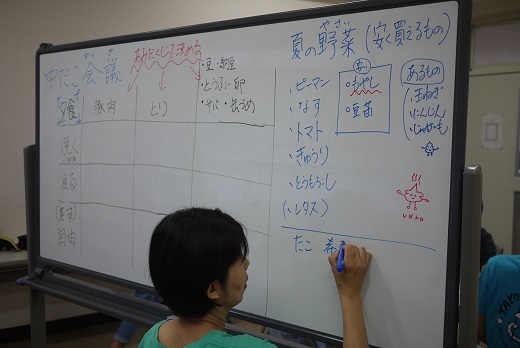 中だこ会議
あみだくじで決める
豚肉
とり
・豆・納豆
・とうふ・卵
焼く
煮る
蒸す
自由
夏の野菜(安く買えるもの)
やさい
・ピーマン
・なす
・トマト
・きゅうり
・とうもろこし
(・レタス)
・もやし
・豆苗
あるもの
玉ねぎ
にんじん
じゃがいも
UNKO
たこ